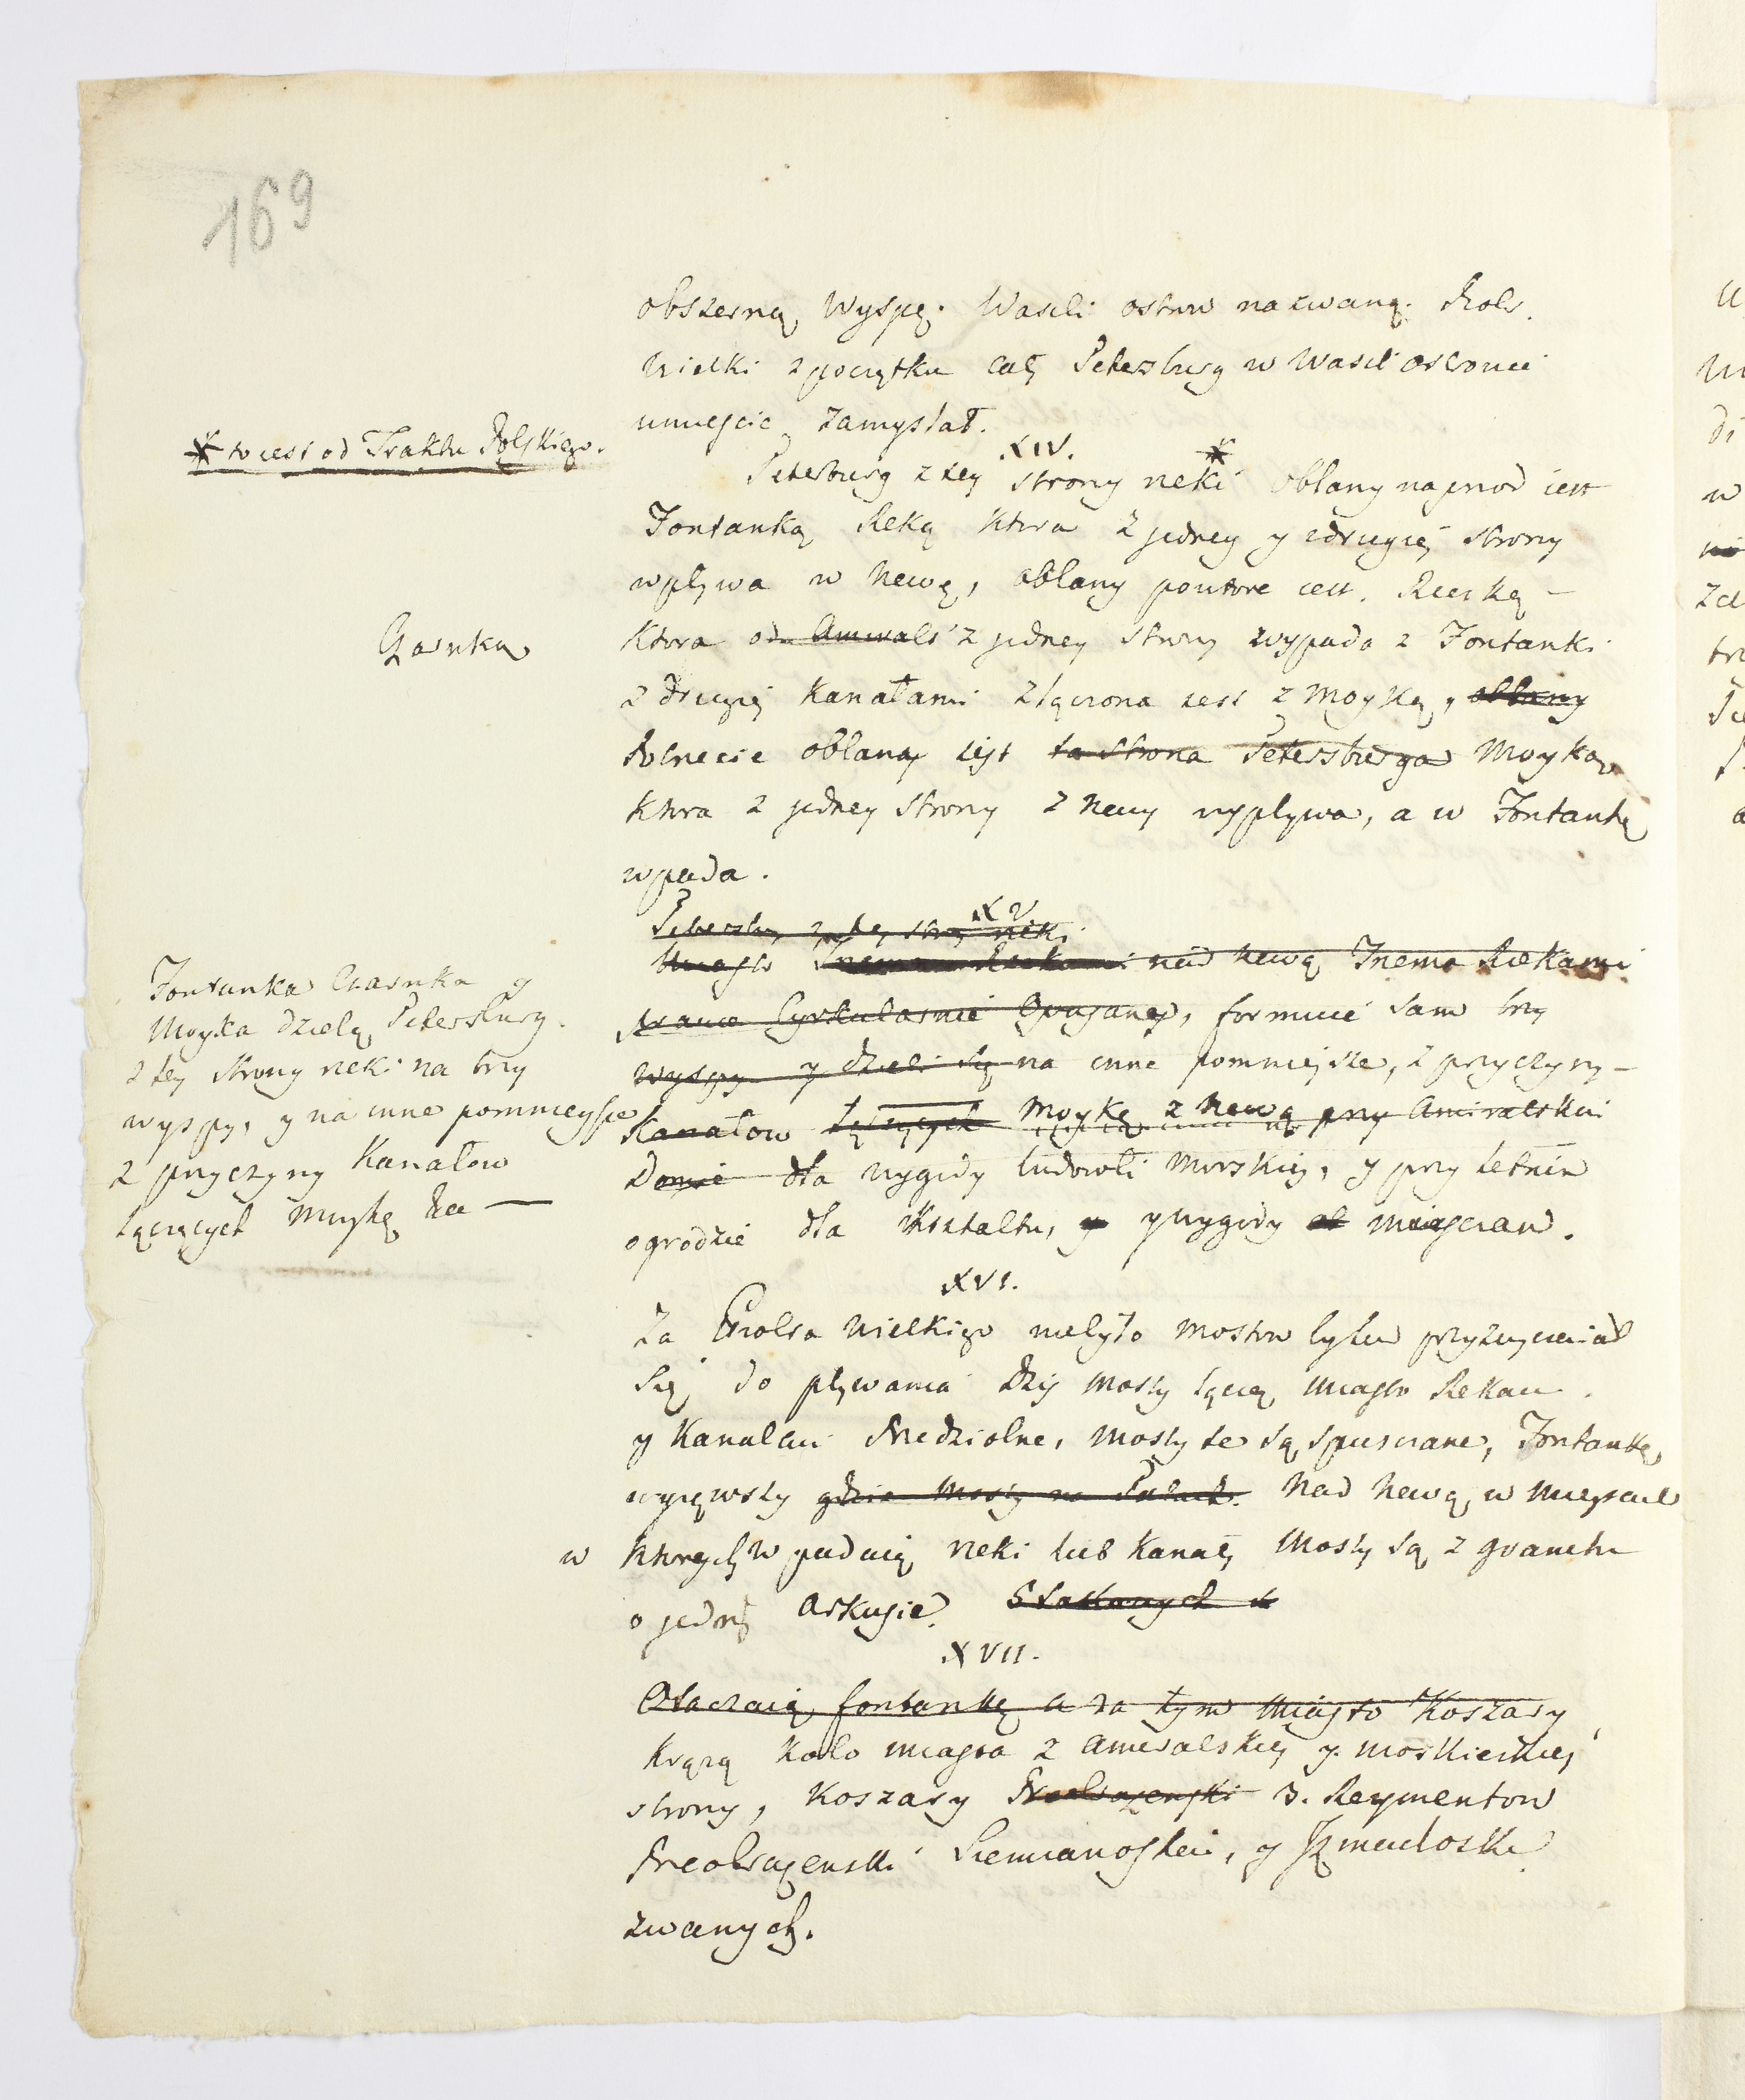 169
obszerną Wyspę. Wasili ostrw nazwaną. Piotr.
Wielki z początku cały Petersburg w Wasil ostrowie
umieścić zamyślał.
XIV.
* to iest od Traktu Polskiego.
Petersburg z tey strony rzeki * oblany naprzod iest
Fontanką Rzeką ktora z jedney y zdrugiej strony
wpływa w Newę, oblany powtore iest. Rzeczką –
Czarnką
ktora od Amirals z jedney strony wypada z Fontanki
z drugiej kanałami złączona iest z Moyką, oblany
Potrzecie oblany iest ta strona Petersburga Moyką
ktora z jedney strony z Newy wypływa, a w Fontankę
wpada.
XV
Petersbu z tey stro rzeki
Miasto nad Newą Trzema Rzekami
prawie Cyrkularnie Opasane, formuie sam trzy
wyspy y dzieli się na inne pomniejsze, z przyczyny –
Kanałow łączących Moykę z Newą przy Amiralskim
Domie dla wygody budowli Morskiej, y przy letnim
ogrodzie dla kształtu, y y wygody miesczan.
Fontanka Czarnka y
Moyka dzielą Petersburg.
z tey strony rzeki na trzy
wyspy, y na inne pomnieysze
z przyczyny Kanałow
łączących Moykę
XVI.
Za Piotra Wielkiego niebyło mostow lylu przyzwyczaiał
się do pływania Dziś mosty łączą miasto Rzekami
y Kanałami Przedzielne, mosty te są spusczane, Fontankę
wyjąwszy gdzie Mosty na Nad Newą, w mieyscach
w ktorych wpadaią rzeki lub kanały Mosty są z granitu
o jedny Arkusie.
XVII.
Otaczaią fontankę a za tym Miasto Koszary
Krążą koło miasta z Amiralskiej y. Moskiewskiej
strony, Koszary Preobrażenski 3. Reymentow
Preobrażenski Siemianoskii, y Izmailoski
zwanych.